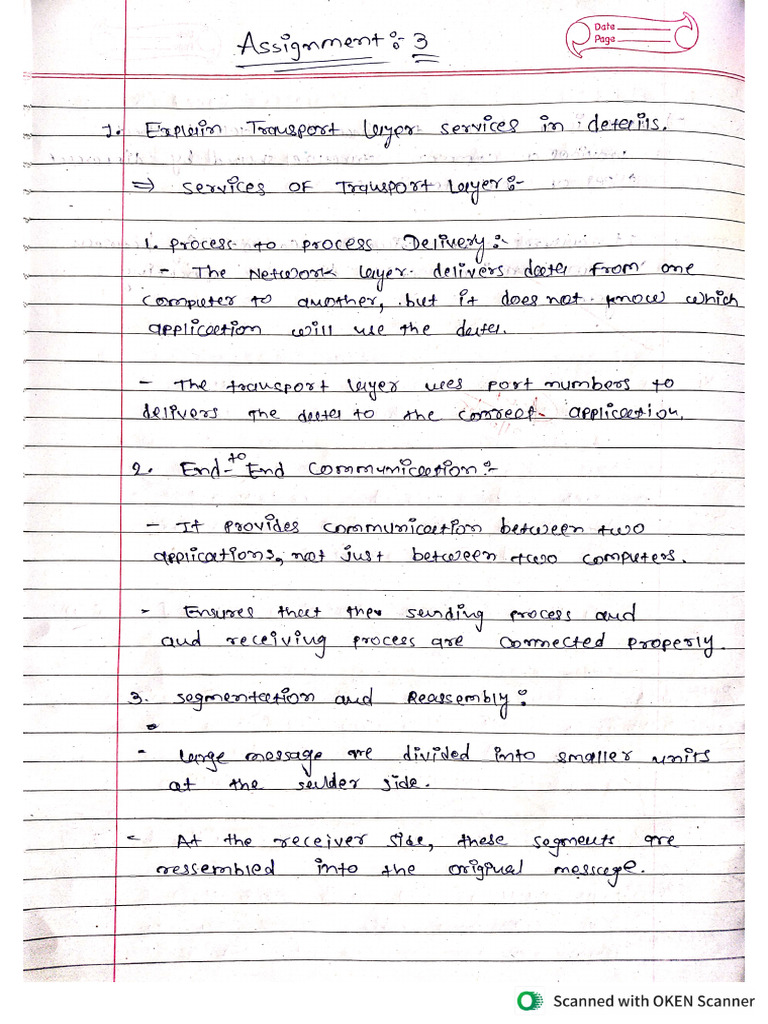 Assignment :- 3
Date
Page
1. Explain Transport layer services in details.
⇒ Services OF Transport Layer:-
1. Process to process Delivery:-
- The Network layer delivers data from one
computer to another, but it does not know which
application will use the data.
- The transport layer uses port numbers to
delivers the data to the correct application.
2. End-to End Communication:-
- It provides communication between two
applications, not just between two computers.
- Ensures that the sending process and
and receiving process are connected properly.
3. Segmentation and Reassembly:
- Large message are divided into smaller units
at the sender side.
- At the receiver side, these segments are
ressembled into the original message.
Scanned with OKEN Scanner